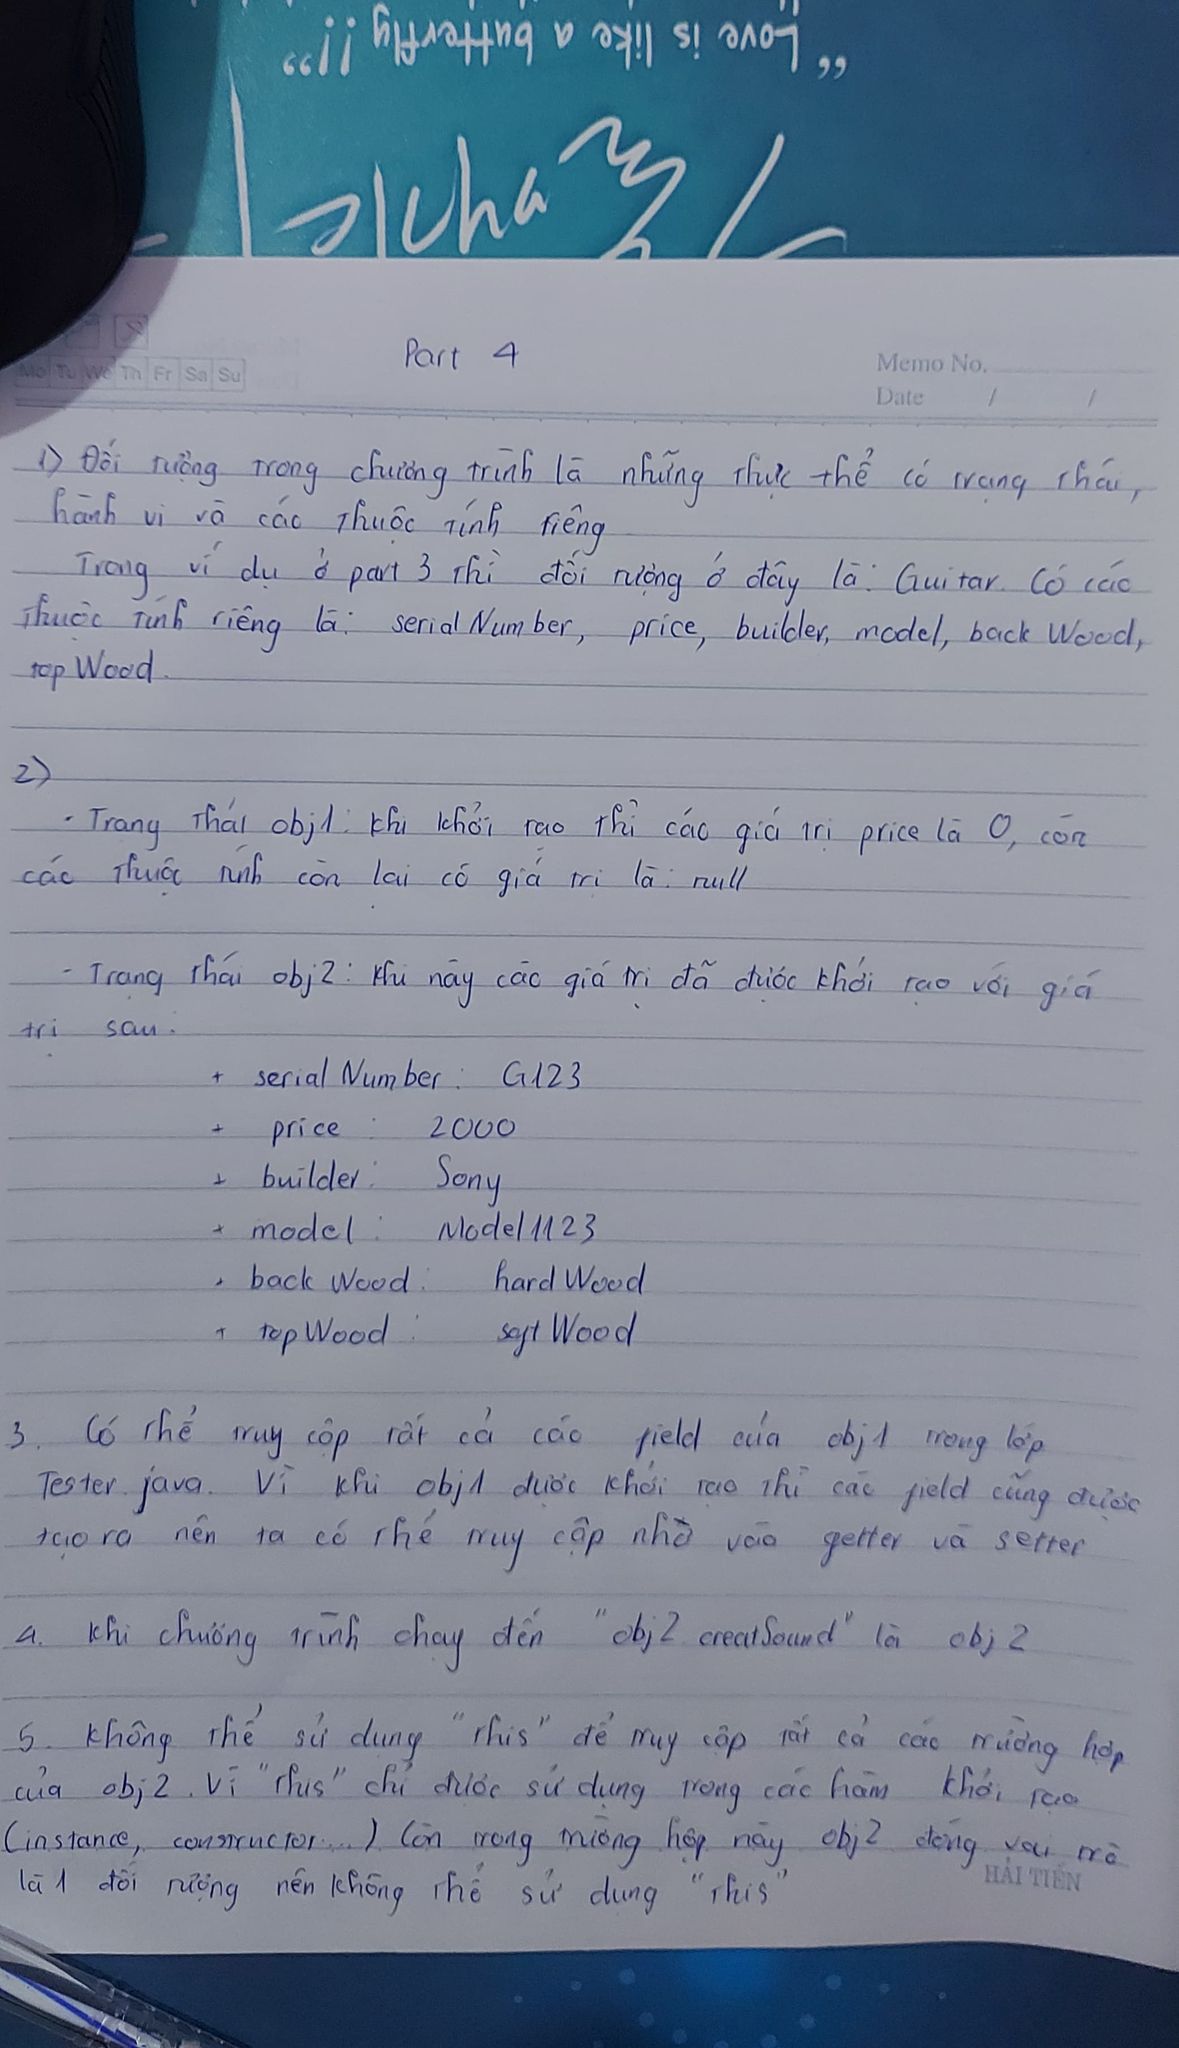 “Love is like a butterfly !!”
Part 4
Mo Tu We Th Fr Sa Su
Memo No.
Date / /
1) Đối tượng trong chương trình là những thực thể có trạng thái,
hành vi và các thuộc tính riêng
Trong ví dụ ở part 3 thì đối tượng ở đây là: Guitar. Có các
thuộc tính riêng là: serialNumber, price, builder, model, backWood,
topWood.
2)
- Trạng thái obj1: khi khởi tạo thì các giá trị price là 0, còn
các thuộc tính còn lại có giá trị là: null
- Trạng thái obj2: khi này các giá trị đã được khởi tạo với giá
trị sau:
+ serialNumber: G123
+ price: 2000
+ builder: Sony
+ model: Model1123
+ backWood: hardWood
+ topWood: softWood
3. Có thể truy cập tất cả các field của obj1 trong lớp
Tester.java. Vì khi obj1 được khởi tạo thì các field cũng được
tạo ra nên ta có thể truy cập nhờ vào getter và setter
4. Khi chương trình chạy đến "obj2.creatSound" là obj2
5. Không thể sử dụng "this" để truy cập tất cả các trường hợp
của obj2. Vì "this" chỉ được sử dụng trong các hàm khởi tạo
(instance, constructor...) Còn trong trường hợp này obj2 đóng vai trò
là 1 đối tượng nên không thể sử dụng "this"
HẢI TIẾN